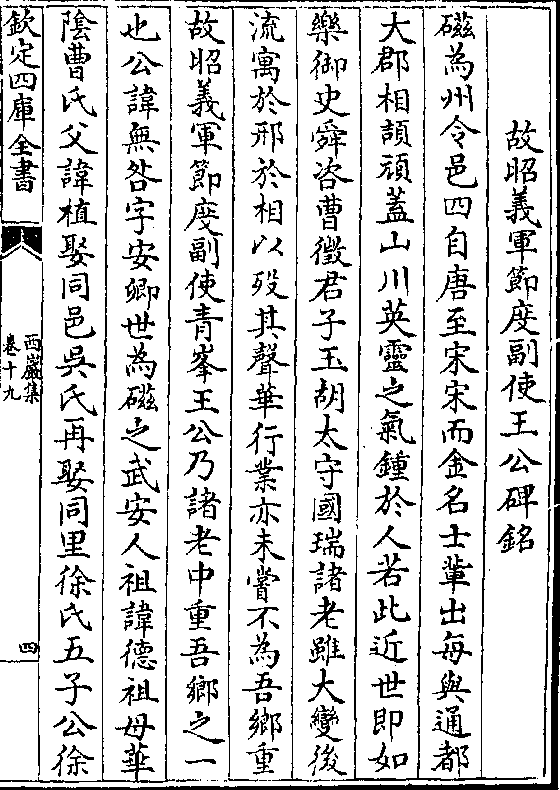 故昭義軍節度副使王公碑銘
磁為州令邑四自唐至宋宋而金名士輩出每與通都
大郡相頡頏蓋山川英靈之氣鍾於人若此近世即如
樂御史舜咨曹徵君子玉胡太守國瑞諸老雖大變後
流寓於邢於相以殁其聲華行業亦未嘗不為吾鄉重
故昭義軍節度副使青峯王公乃諸老中重吾鄉之一
也公諱無咎字安卿世為磁之武安人祖諱德祖母華
陰曹氏父諱植娶同邑吳氏再娶同里徐氏五子公徐
欽定四庫全書
西巖集
卷十九
四